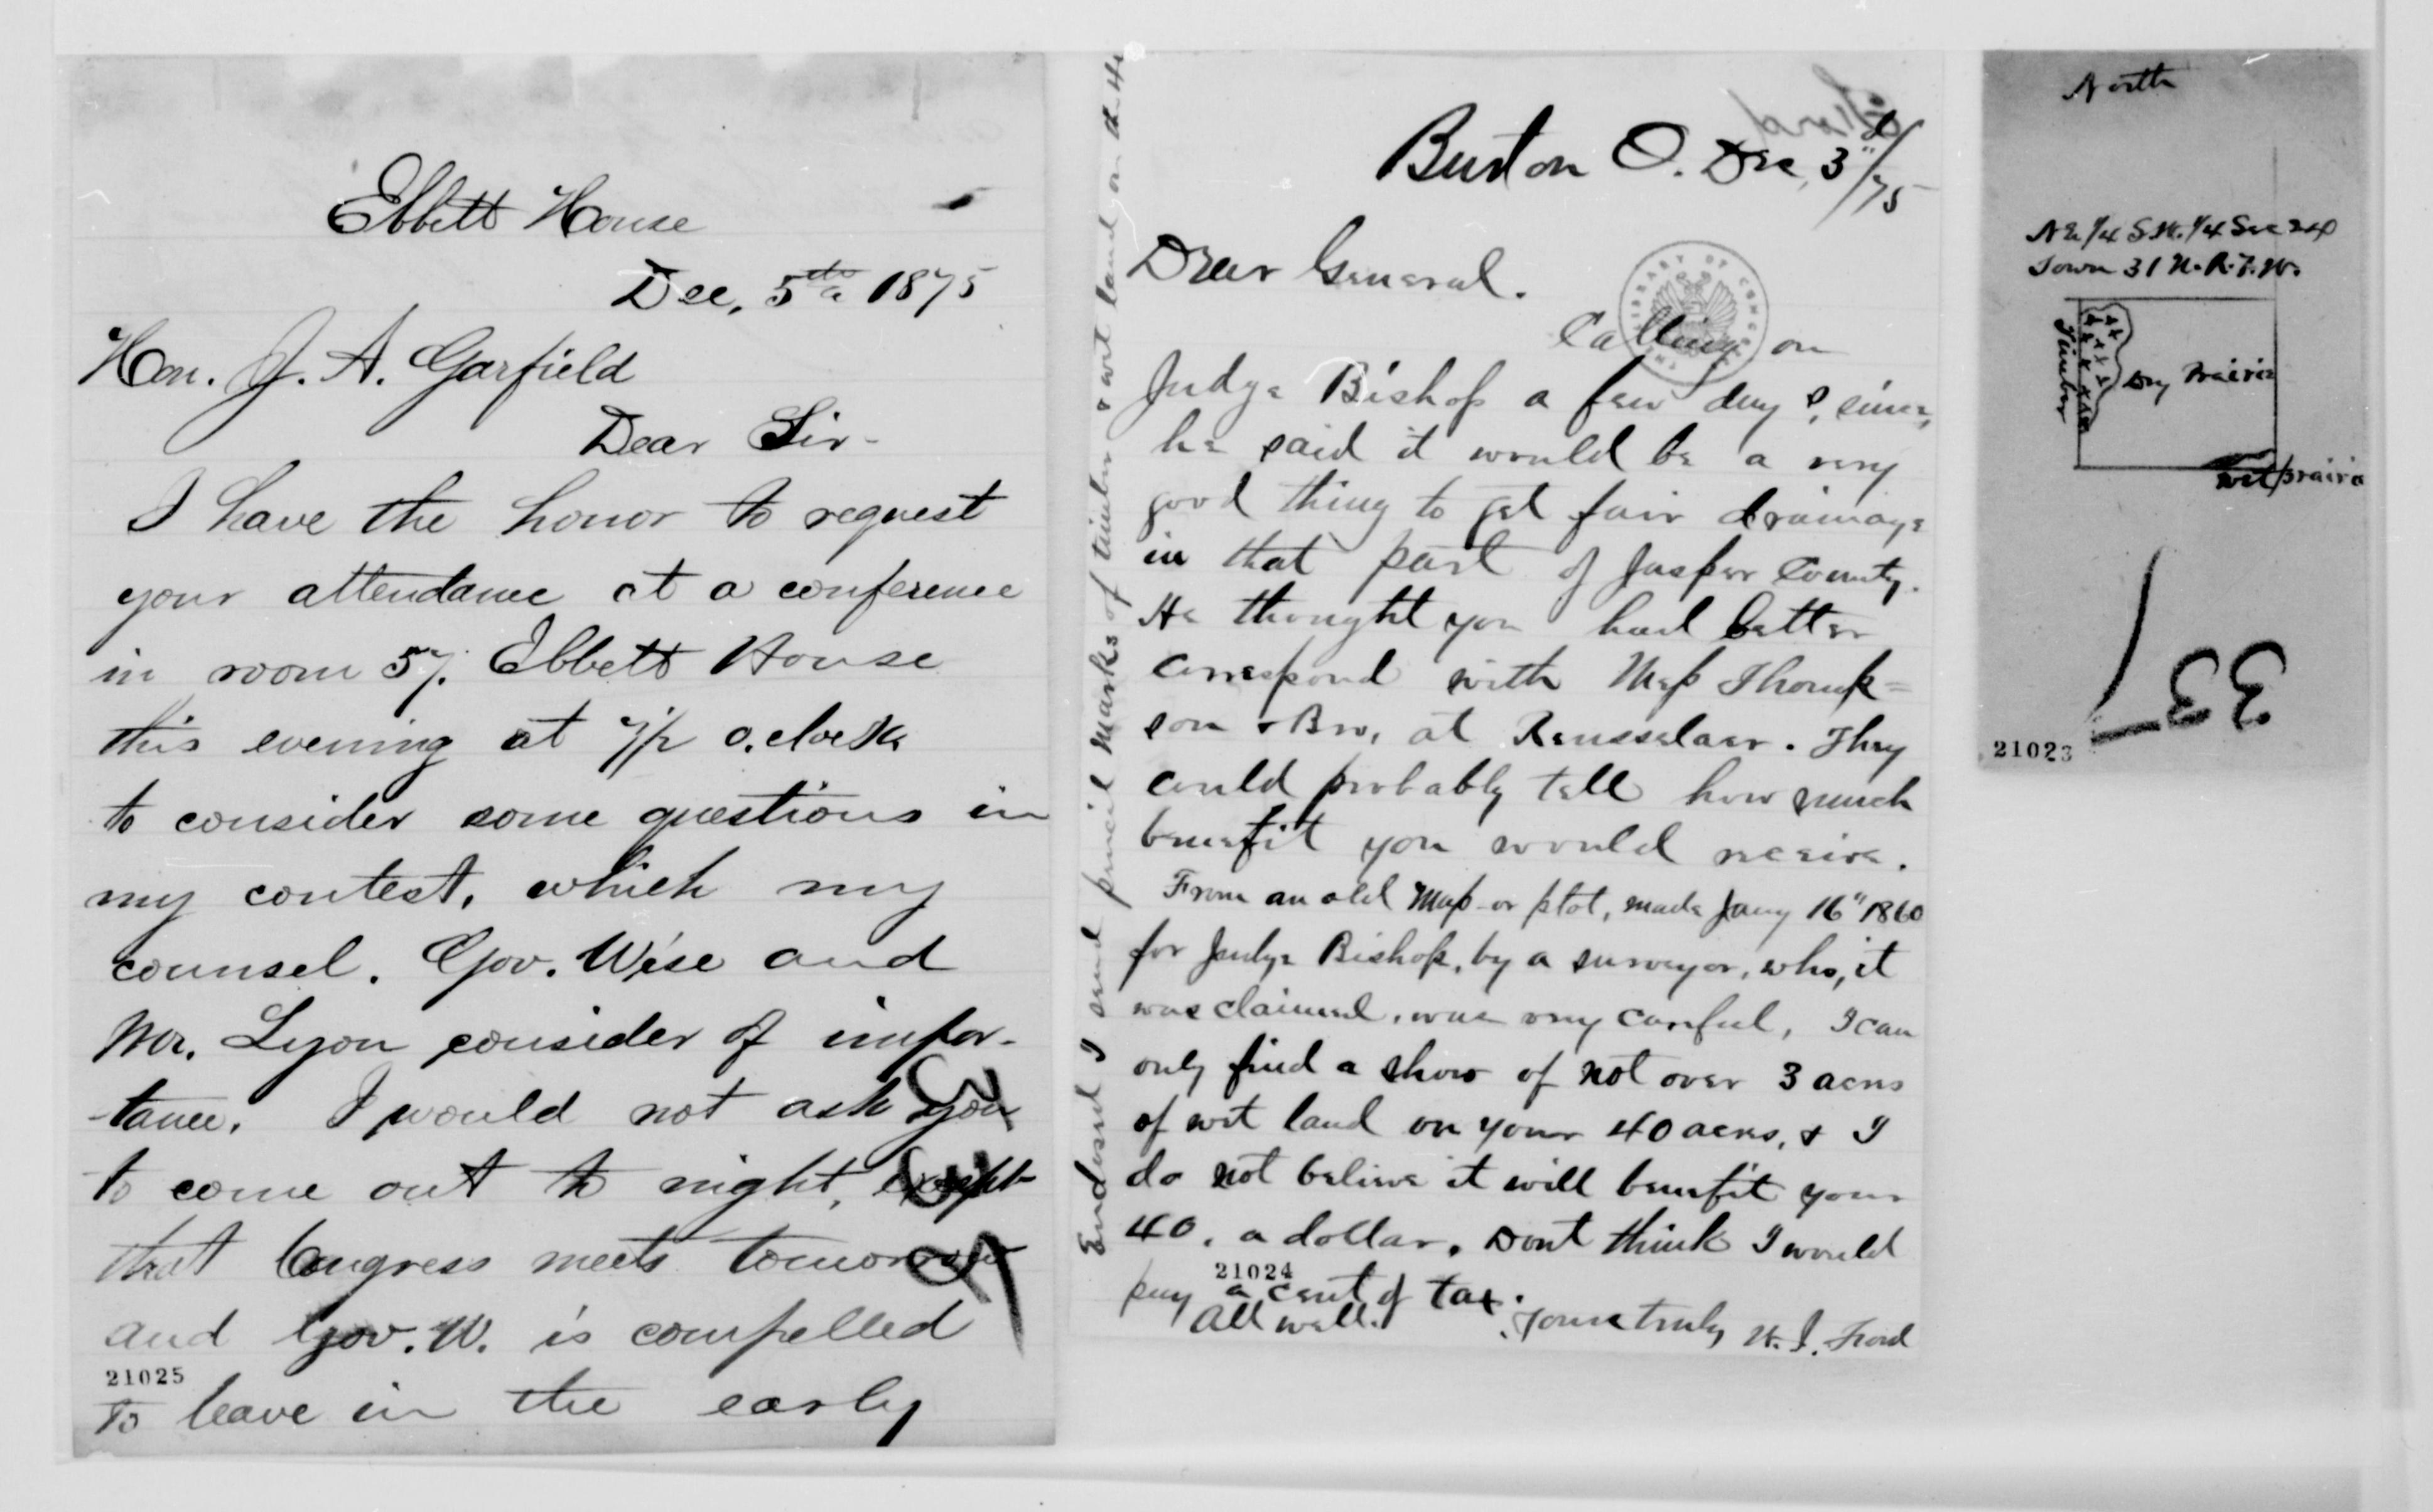 Ebbett House
Dec. 5th 1875
Hon. J. A. Garfield
Dear Sir-
I have the honor to request
your attendance at a conference
in room 57. Ebbett House
this evening at 7½ o.clock
to consider some questions in
my contest, which my
counsel. Gov. Wise and
Mr. Lyon consider of impor-
tance. I would not ask you
to come out to night, except
that Congress meets tomorrow
and Gov. W. is compelled
21025
to leave in the early
339
Burton O. Dec, 3d/75
Dear General.
LIBRARY OF CONGRESS
Calling on
Judge Bishop a few days, since,
he said it would be a very
good thing to get fair drainage
in that part of Jasper County.
He thought you had better
correspond with Thomp=
son & Bro, at Rensselaer. They
could probably tell how much
benefit you would receive.
From an old Map or plot, made Jany 16" 1860
for Judge Bishop, by a surveyor, who, it
was claimed, was very careful, I can
only find a show of not over 3 acres
of wet land on your 40 acres, & I
do not believe it will benefit your
40, a dollar. Dont think I would
21024
pay a cent of tax.
All well. Yours truly H. S. Ford
Enclosed I send pencil marks of timber & wet land on the
North
NE 1/4 S.W. 1/4 Sec 24
Town 31 N. R. 7. W.
Timber
Dry Prairie
wet prairie
33
21023